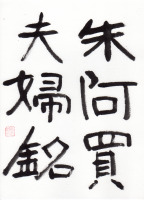 朱阿買
夫婦銘